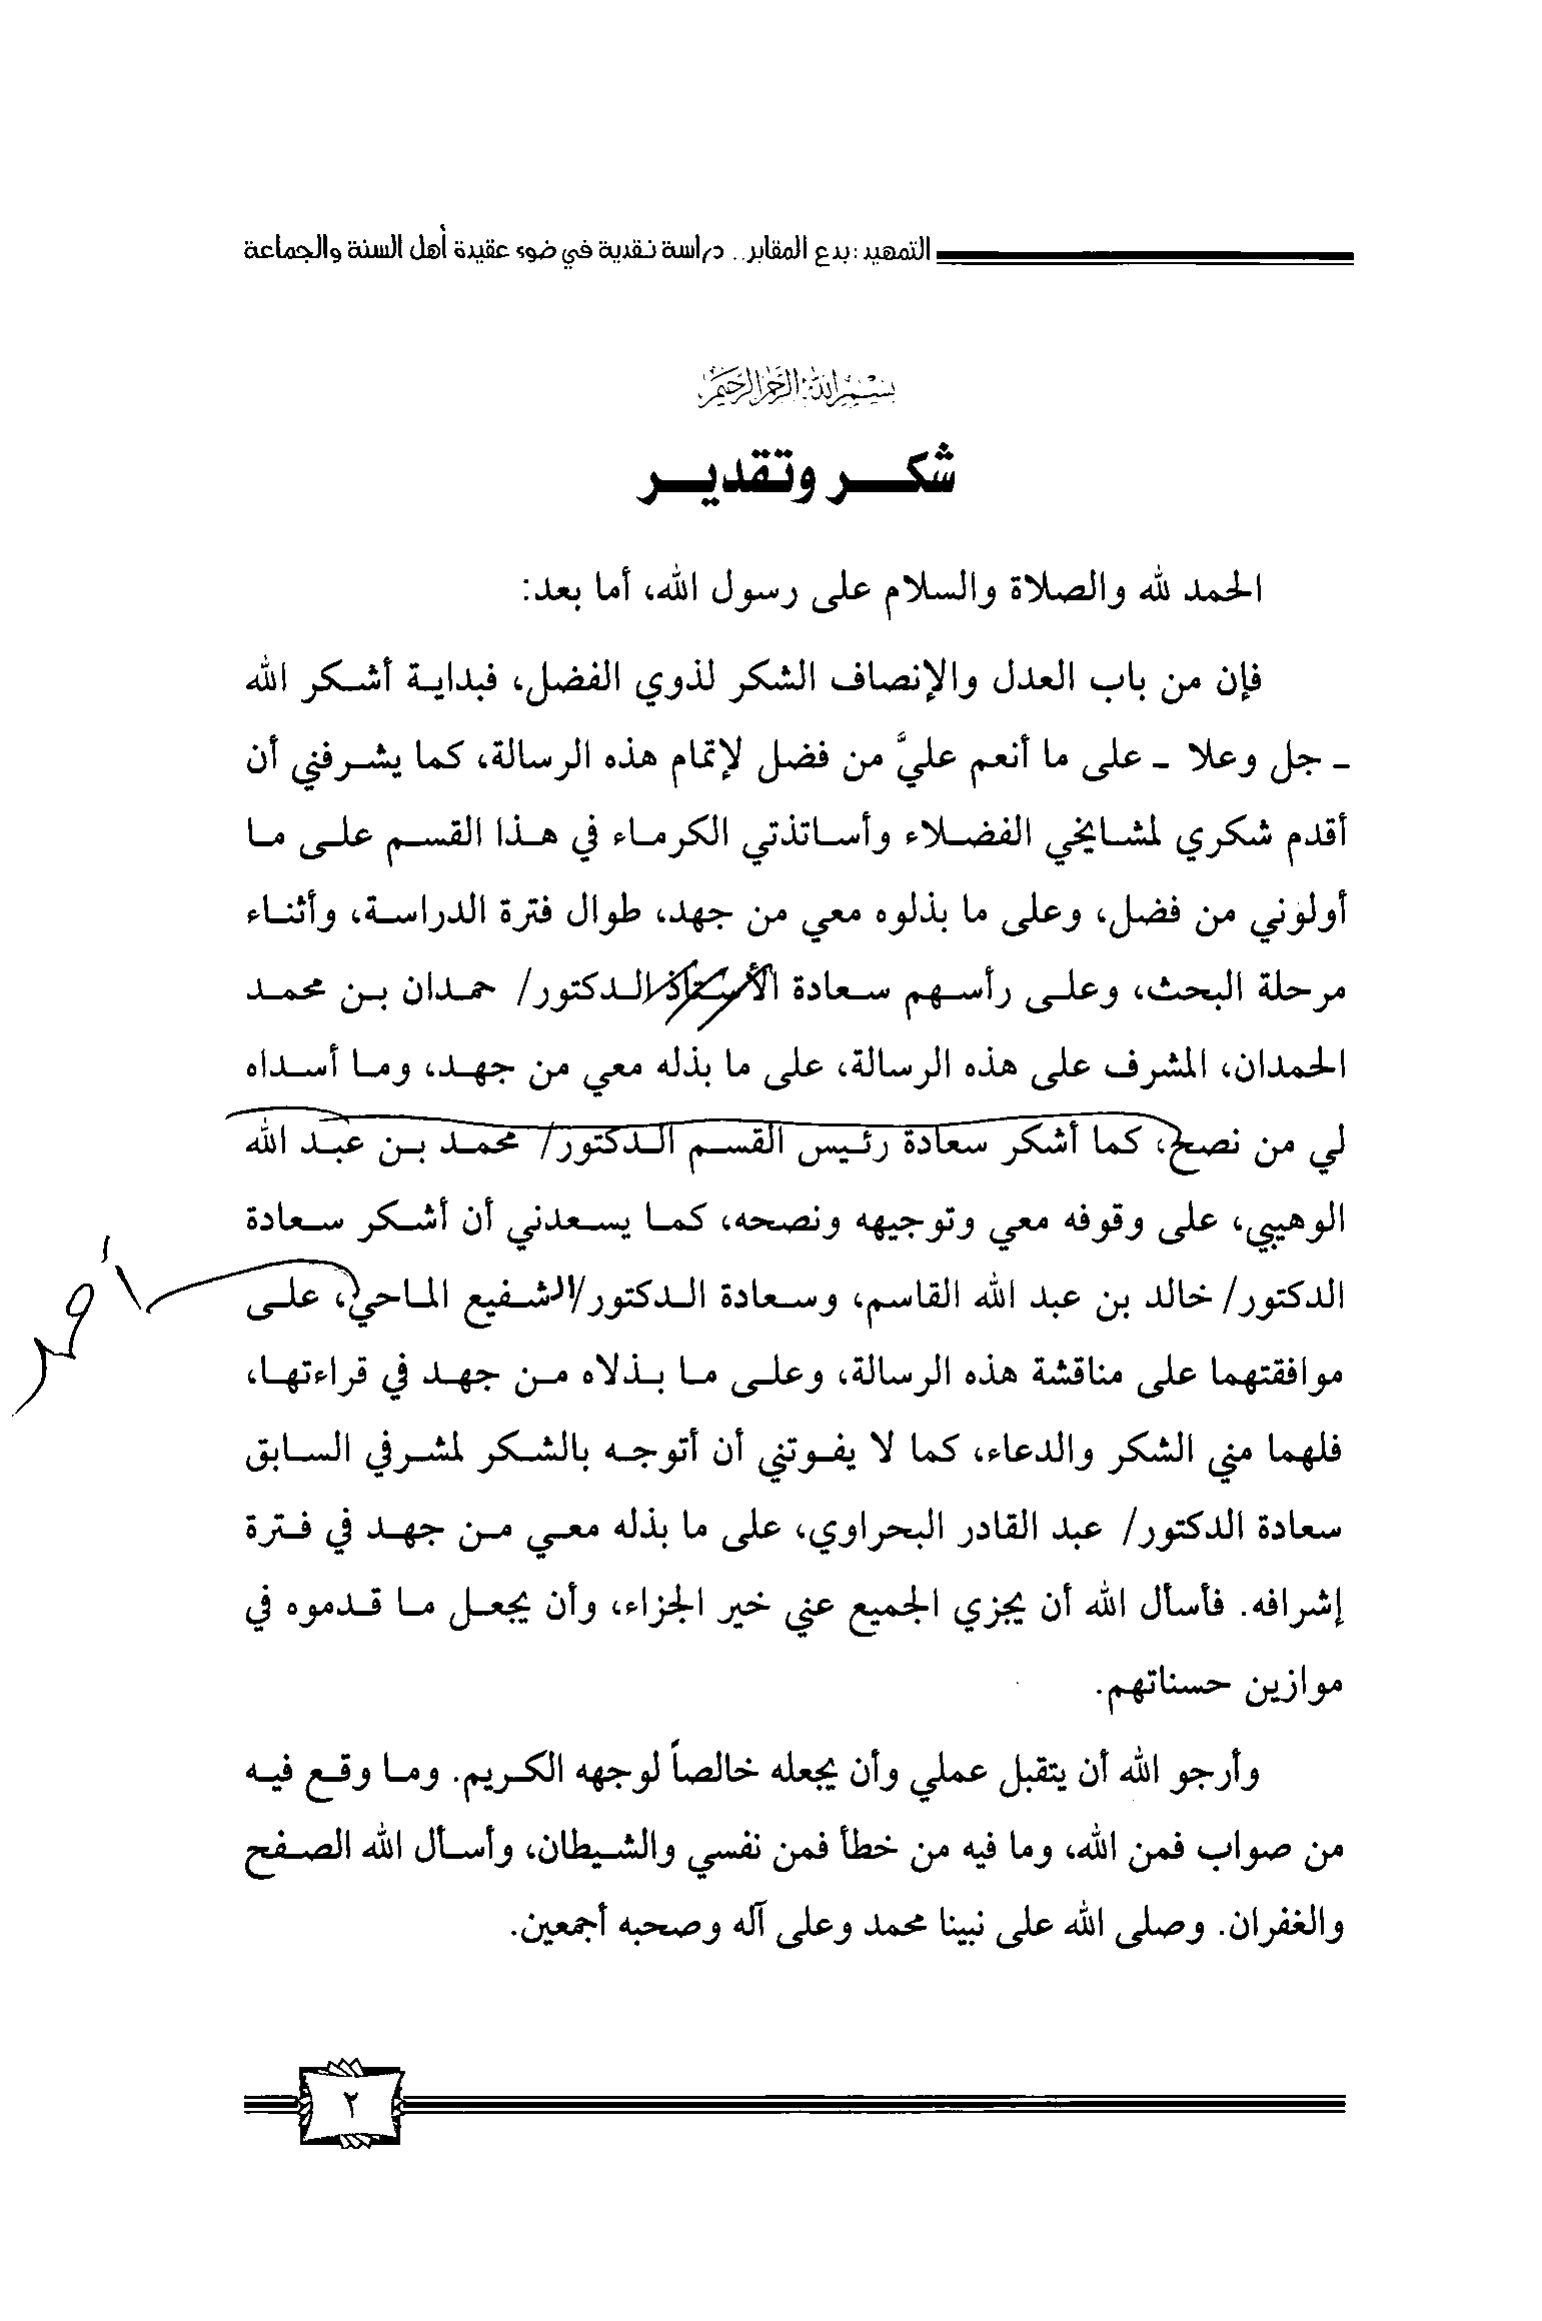 التمهيد: بدع المقابر.. دراسة نقدية في ضوء عقيدة أهل السنة والجماعة
بسم الله الرحمن الرحيم
شكر وتقدير
الحمد لله والصلاة والسلام على رسول الله، أما بعد:
فإن من باب العدل والإنصاف الشكر لذوي الفضل، فبداية أشكر الله
ـ جل وعلا ـ على ما أنعم عليَّ من فضل لإتمام هذه الرسالة، كما يشرفني أن
أقدم شكري لمشايخي الفضلاء وأساتذتي الكرماء في هذا القسم على ما
أولوني من فضل، وعلى ما بذلوه معي من جهد، طوال فترة الدراسة، وأثناء
مرحلة البحث، وعلى رأسهم سعادة الأستاذ الدكتور/ حمدان بن محمد
الحمدان، المشرف على هذه الرسالة، على ما بذله معي من جهد، وما أسداه
لي من نصح، كما أشكر سعادة رئيس القسم الدكتور/ محمد بن عبد الله
الوهيبي، على وقوفه معي وتوجيهه ونصحه، كما يسعدني أن أشكر سعادة
الدكتور/ خالد بن عبد الله القاسم، وسعادة الدكتور/ الشفيع الماحي، على
موافقتهما على مناقشة هذه الرسالة، وعلى ما بذلاه من جهد في قراءتها،
فلهما مني الشكر والدعاء، كما لا يفوتني أن أتوجه بالشكر لمشرفي السابق
سعادة الدكتور/ عبد القادر البحراوي، على ما بذله معي من جهد في فترة
إشرافه. فأسأل الله أن يجزي الجميع عني خير الجزاء، وأن يجعل ما قدموه في
موازين حسناتهم.
وأرجو الله أن يتقبل عملي وأن يجعله خالصاً لوجهه الكريم. وما وقع فيه
من صواب فمن الله، وما فيه من خطأ فمن نفسي والشيطان، وأسأل الله الصفح
والغفران. وصلى الله على نبينا محمد وعلى آله وصحبه أجمعين.
٢